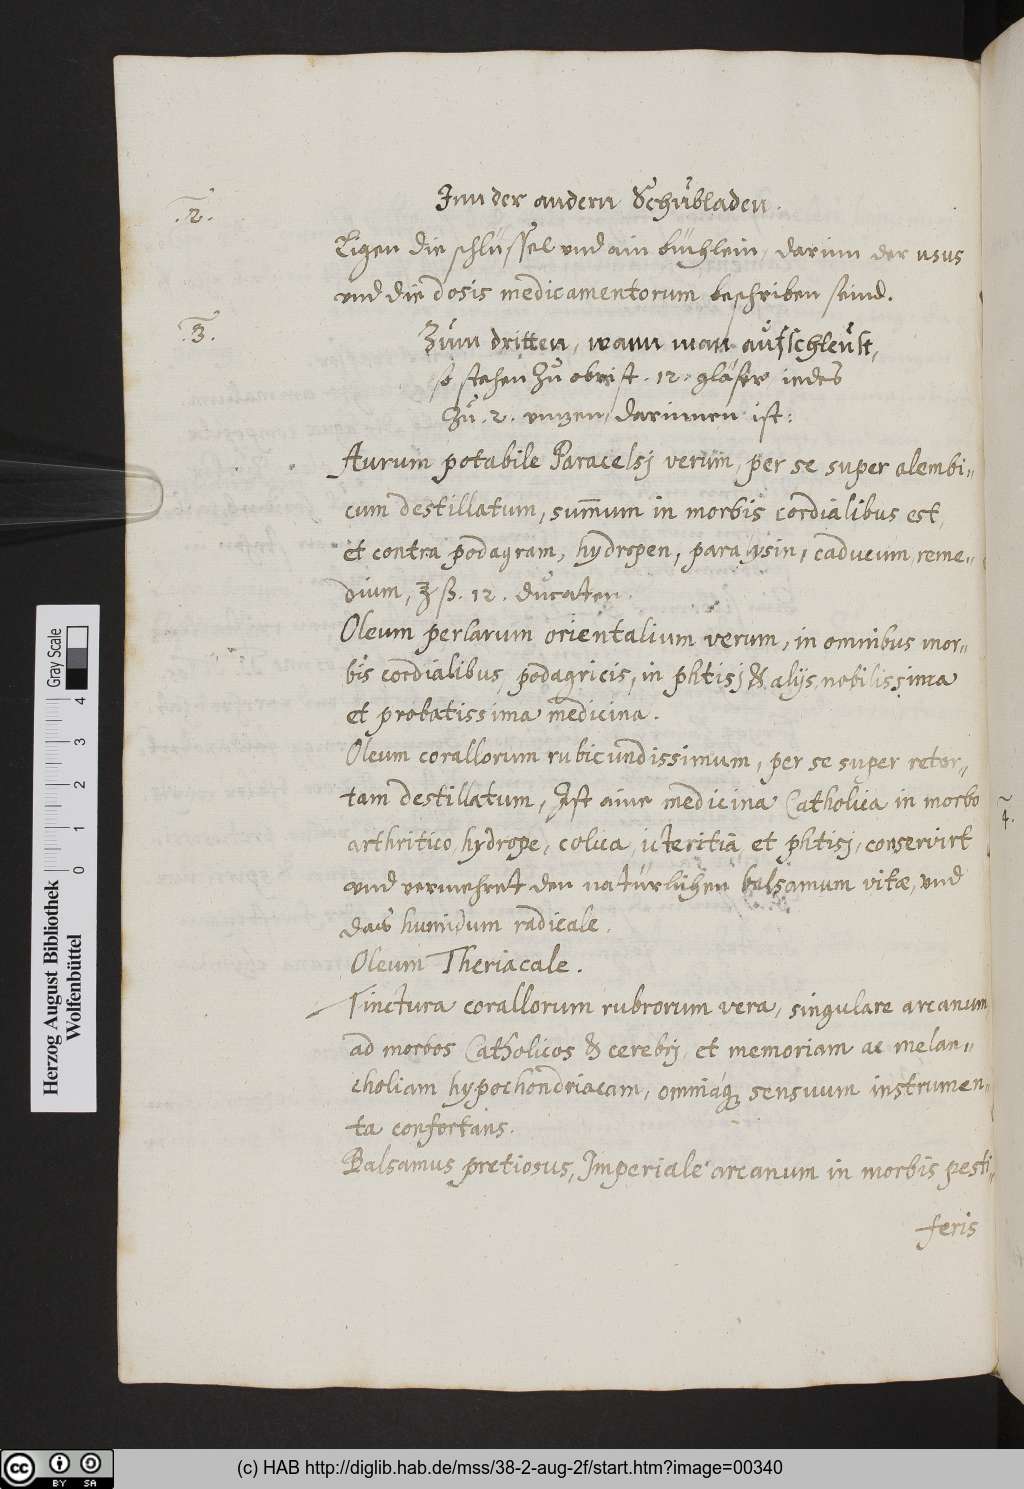 .2.
Inn der andern Schubladen.
Ligen die schlüssel und ain büchlein, darinn der usus
und die dosis medicamentorum beschriben seind.
.3.
Zum dritten, wann man aufschleust,
so stehen zu obrist .12. gläser, iedes
zu .2. unzen, darinnen ist:
Aurum potabile Paracelsj verum, per se super alembi,,
cum destillatum, sum̄um in morbis cordialibus est,
et contra podagram, hydropen, paralysin, caducum, reme,,
dium, ʒ ß. 12. ducaten.
Oleum perlarum orientalium verum, in omnibus mor,,
bis cordialibus, podagricis, in phtisj & alijs nobilissima
et probatissima medicina.
Oleum corallorum rubicundissimum, per se super retor,,
tam destillatum, Ist aine medicina Catholica in morbo
arthritico, hydrope, colica, icteritia et phtisj, conservirt
und vermehret den natürlichen balsamum vitæ, und
das humidum radicale.
Oleum Theriacale.
Tinctura corallorum rubrorum vera, singulare arcanum
ad morbos Catholicos & cerebrj, et memoriam ac melan,,
choliam hypochondriacam, omniáq; sensuum instrumen,,
ta confortans.
Balsamus pretiosus, Imperiale arcanum in morbis pesti,,
feris
4.
Herzog August Bibliothek
Wolfenbüttel
0 1 2 3 4
Gray Scale
cc BY SA
(c) HAB http://diglib.hab.de/mss/38-2-aug-2f/start.htm?image=00340